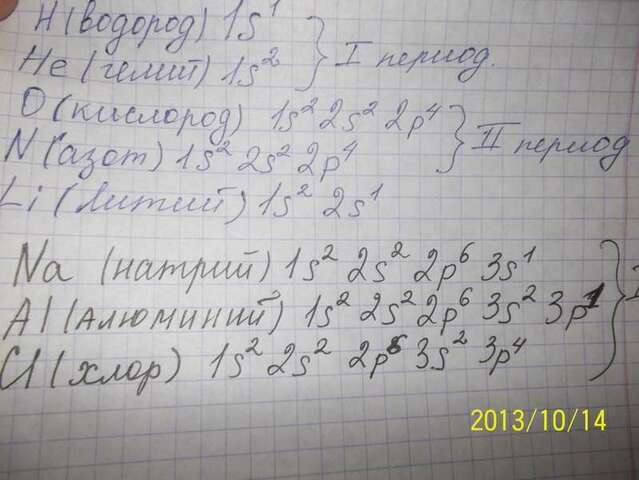 H (водород) 1s¹ } I период.
He (гелий) 1s²
O (кислород) 1s² 2s² 2p⁴ } II период
N (азот) 1s² 2s² 2p⁴
Li (литий) 1s² 2s¹
Na (натрий) 1s² 2s² 2p⁶ 3s¹
Al (алюминий) 1s² 2s² 2p⁶ 3s² 3p¹
Cl (хлор) 1s² 2s² 2p⁶ 3s² 3p⁴
2013/10/14